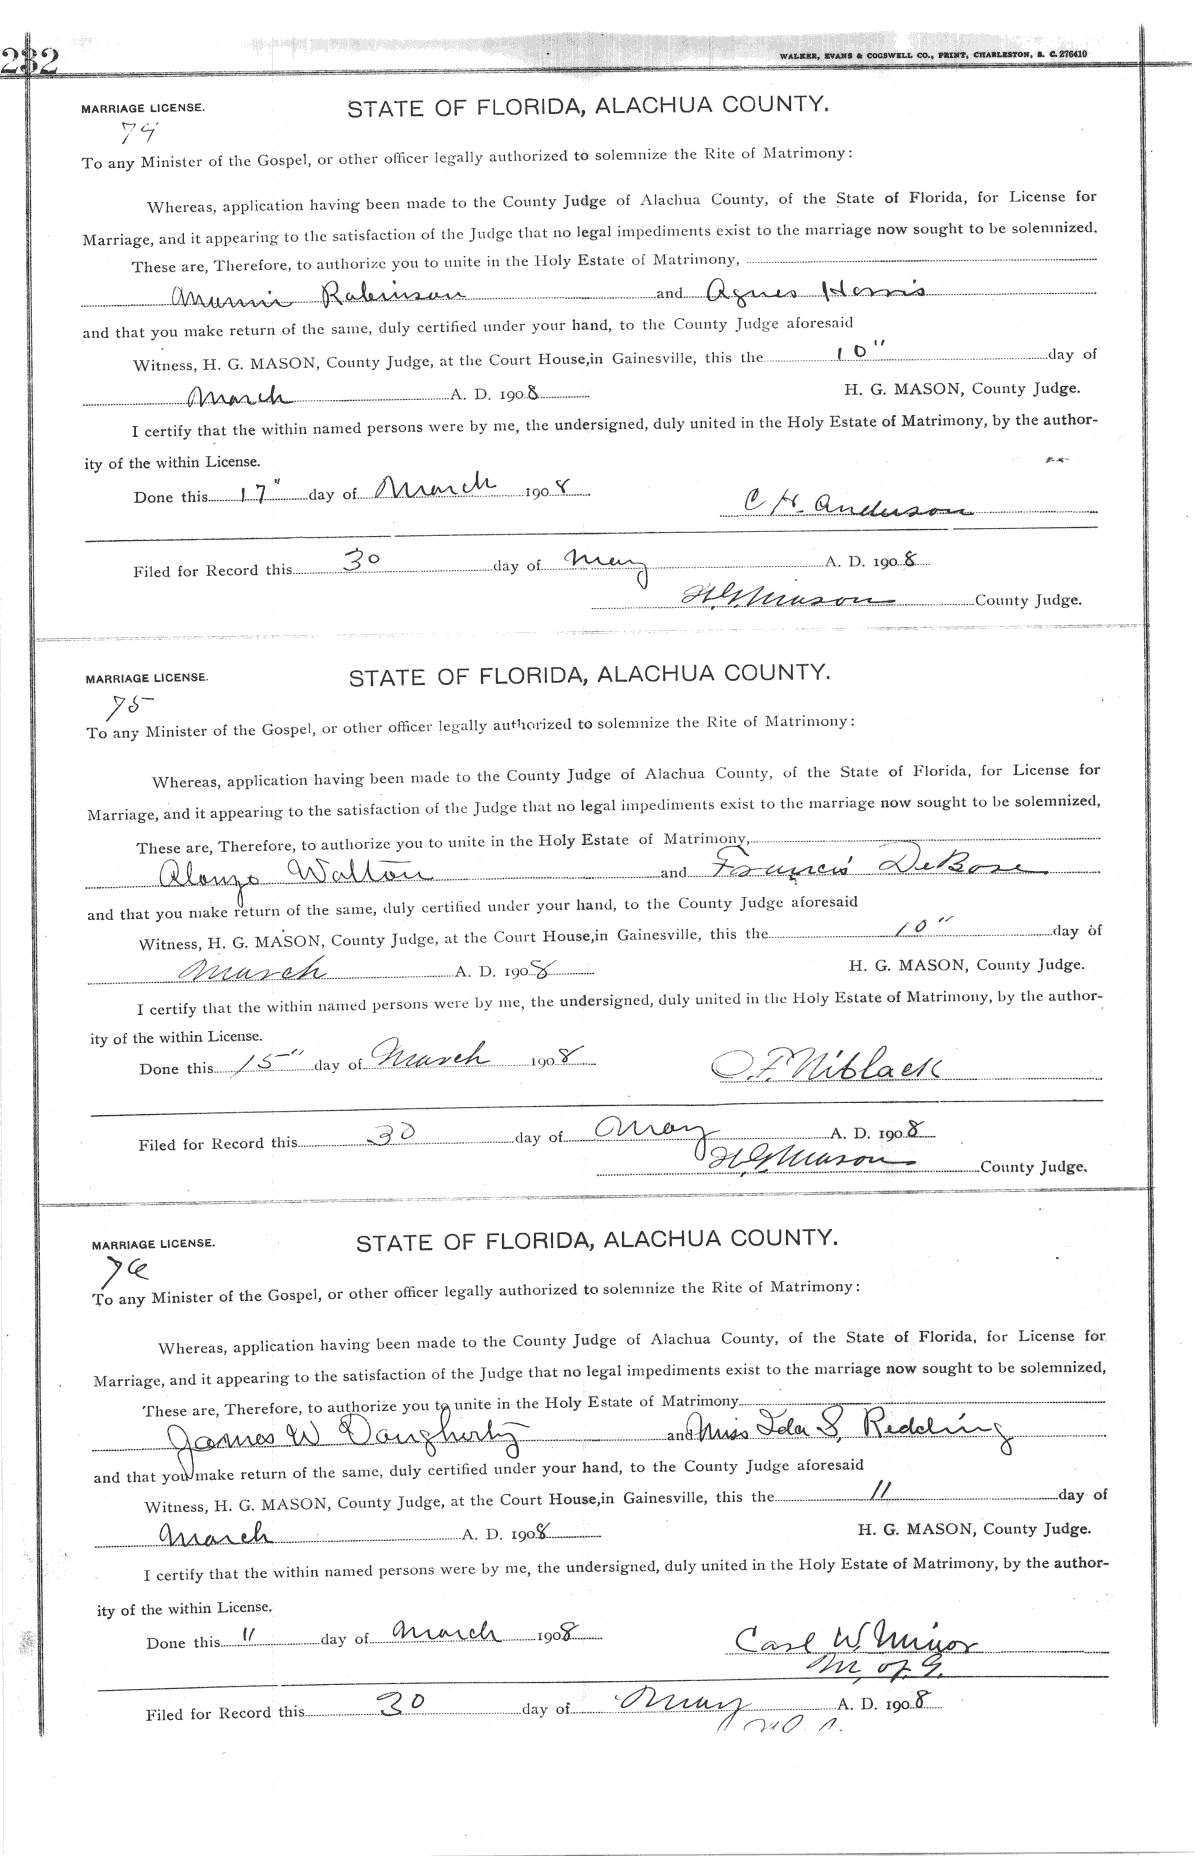 232
WALKER, EVANS & COGSWELL CO., PRINT, CHARLESTON, S. C. 276410
MARRIAGE LICENSE. STATE OF FLORIDA, ALACHUA COUNTY.
74
To any Minister of the Gospel, or other officer legally authorized to solemnize the Rite of Matrimony:
Whereas, application having been made to the County Judge of Alachua County, of the State of Florida, for License for
Marriage, and it appearing to the satisfaction of the Judge that no legal impediments exist to the marriage now sought to be solemnized.
These are, Therefore, to authorize you to unite in the Holy Estate of Matrimony,
Robinson and Agnes Harris
and that you make return of the same, duly certified under your hand, to the County Judge aforesaid
Witness, H. G. MASON, County Judge, at the Court House, in Gainesville, this the 10" day of
March A. D. 1908 H. G. MASON, County Judge.
I certify that the within named persons were by me, the undersigned, duly united in the Holy Estate of Matrimony, by the author-
ity of the within License.
Done this 17" day of March 1908
C H. Anderson
Filed for Record this 30 day of May A. D. 1908
H. G. Mason County Judge.
MARRIAGE LICENSE. STATE OF FLORIDA, ALACHUA COUNTY.
75
To any Minister of the Gospel, or other officer legally authorized to solemnize the Rite of Matrimony:
Whereas, application having been made to the County Judge of Alachua County, of the State of Florida, for License for
Marriage, and it appearing to the satisfaction of the Judge that no legal impediments exist to the marriage now sought to be solemnized,
These are, Therefore, to authorize you to unite in the Holy Estate of Matrimony,
Alonzo Walton and Francis DeBose
and that you make return of the same, duly certified under your hand, to the County Judge aforesaid
Witness, H. G. MASON, County Judge, at the Court House, in Gainesville, this the 10" day of
March A. D. 1908 H. G. MASON, County Judge.
I certify that the within named persons were by me, the undersigned, duly united in the Holy Estate of Matrimony, by the author-
ity of the within License.
Done this 15" day of March 1908
O. F. Niblack
Filed for Record this 30 day of May A. D. 1908
H. G. Mason County Judge.
MARRIAGE LICENSE. STATE OF FLORIDA, ALACHUA COUNTY.
76
To any Minister of the Gospel, or other officer legally authorized to solemnize the Rite of Matrimony:
Whereas, application having been made to the County Judge of Alachua County, of the State of Florida, for License for
Marriage, and it appearing to the satisfaction of the Judge that no legal impediments exist to the marriage now sought to be solemnized,
These are, Therefore, to authorize you to unite in the Holy Estate of Matrimony
James W Daugherty and Miss Ida S, Redding
and that you make return of the same, duly certified under your hand, to the County Judge aforesaid
Witness, H. G. MASON, County Judge, at the Court House, in Gainesville, this the 11 day of
March A. D. 1908 H. G. MASON, County Judge.
I certify that the within named persons were by me, the undersigned, duly united in the Holy Estate of Matrimony, by the author-
ity of the within License.
Done this 11 day of March 1908
Carl W. Minor
M. of G.
Filed for Record this 30 day of May A. D. 1908